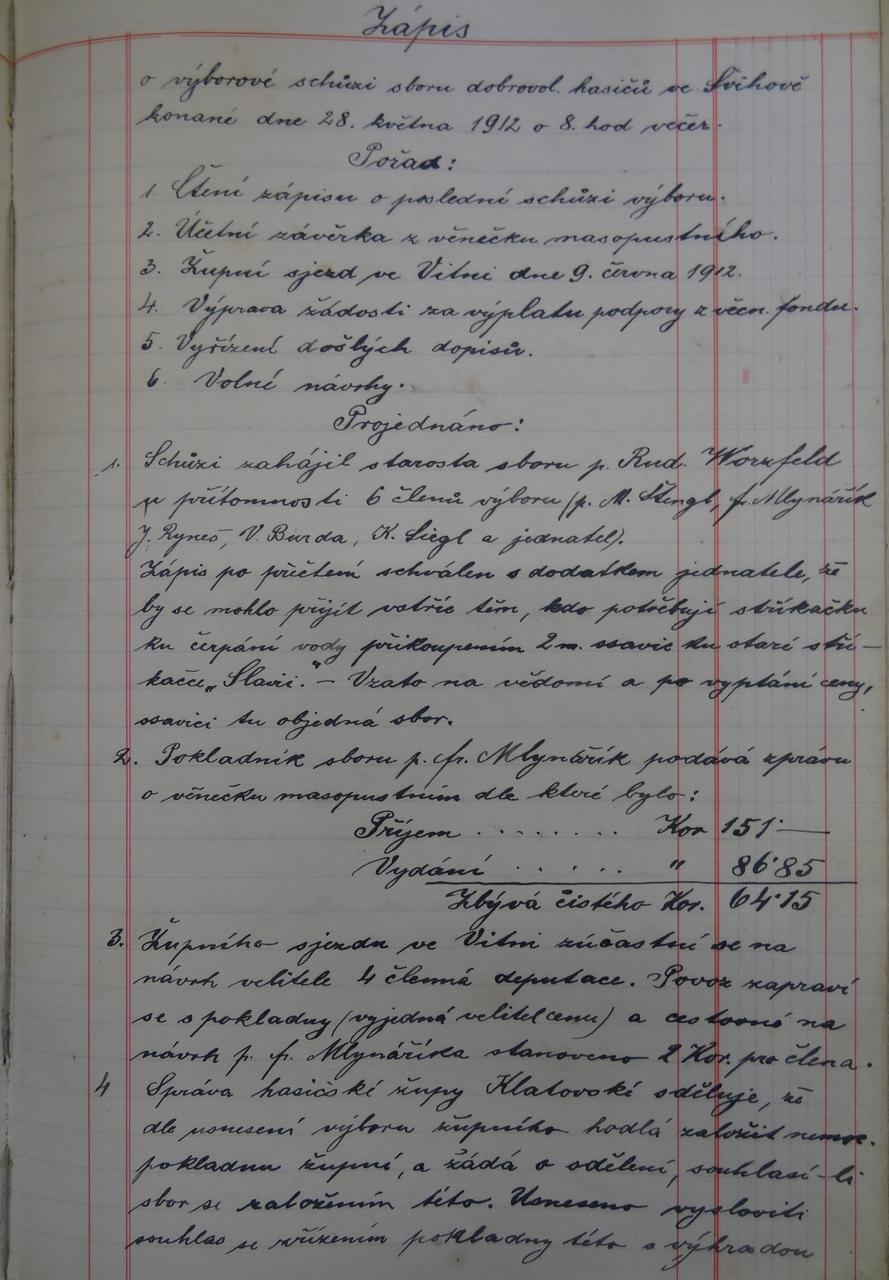 Zápis
o výborové schůzi sboru dobrovol. hasičů ve Švihově
konané dne 28. května 1912 o 8. hod večer.
Pořad:
1. Čtení zápisu o poslední schůzi výboru.
2. Účetní závěrka z věnečku masopustního.
3. Župní sjezd ve Vitni dne 9. června 1912.
4. Výprava žádosti za výplatu podpory z věcn. fondu.
5. Vyřízení došlých dopisů.
6. Volní návrhy.
Projednáno:
1. Schůzi zahájil starosta sboru p. Rud. Worzfeld
u přítomnosti 6 členů výboru (p. M. Štengl, fr. Mlynářík
J. Ryneš, V. Burda, K. Siegl a jednatel).
Zápis po přečtení schválen s dodatkem jednatele, že
by se mohlo přijít vstříc těm, kdo potřebují stříkačku
ku čerpání vody přikoupením 2 m. ssavic ku staré stří-
kačce „Slavii." - Vzato na vědomí a po vyptání ceny,
ssavici tu objedná sbor.
2. Pokladník sboru p. fr. Mlynářík podává zprávu
o věnečku masopustním dle které bylo:
Příjem ........ Kor 151·—
Vydání ..... " 86·85
Zbývá čistého Kor. 64·15
3. Župního sjezdu ve Vitni zúčastní se na
návrh velitele 4 členná deputace. Povoz zapraví
se s pokladny (vyjedná velitel cenu) a cestovné na
návrh p. fr. Mlynáříka stanoveno 2 Kor. pro člena.
4 Správa hasičské župy Klatovské sděluje, že
dle usnesení výboru župního hodlá založit nemoc.
pokladnu župní, a žádá o sdělení, souhlasí-li
sbor se založením této. Usneseno vysloviti
souhlas se zřízením pokladny této s výhradou